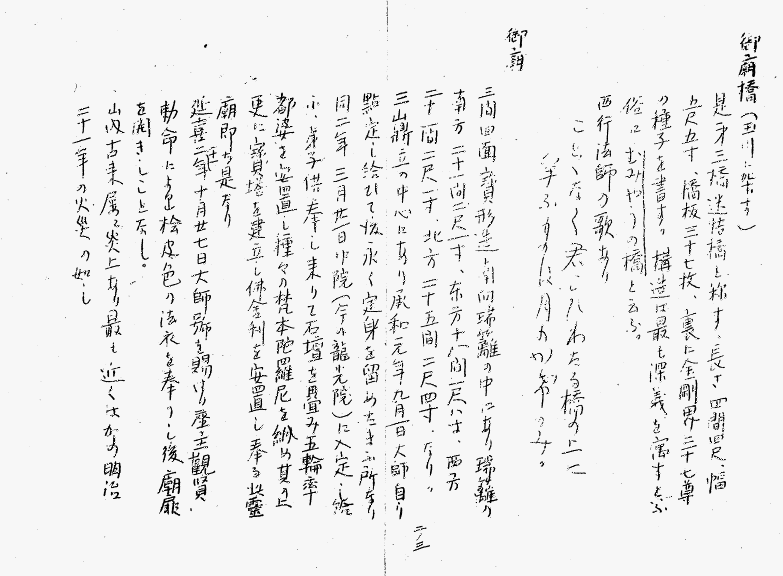 御廟橋(玉川に架す)
是れ第三橋迷結橋と称す、長さ四間四尺、幅
上尺五寸、橋板三十七枚、裏に金剛界三十七尊
の種子を書す。構造は最も深義を寓すと云ふ
俗にむみやうの橋と云ふ。
西行法師の歌あり
ことゝなく君こひわたる橋の上に
あらそふものは月の影のみ
御廟
三間四面宝形造り南向瑞籬の中にあり瑞籬の
南方二十一間二尺一寸、東方十八間一尺八寸、西方
二十一間二尺一寸、北方二十五間二尺四寸、なり。
三山鼎立の中心にあり承和元年九月一日大師自ら
點定し給ひて永く定身を留めたまふ所なり
同二年三月廿一日中院(今の龍光院)に入定し給
ふ、弟子供奉し来りて石壇を畳み五輪率
都婆を安置し種々の梵本陀羅尼を納め其の上
更に寳塔を建立し佛舎利を安置し奉る此霊
廟即ち是なり
延喜二十一年十月廿七日大師号を賜はり座主觀賢
勅命により桧皮色の法衣を奉りし後廟扉
を開きしことなし。
山内古来屡々炎上あり最も近くはかの明治
二十一年の火災の如し
二/三